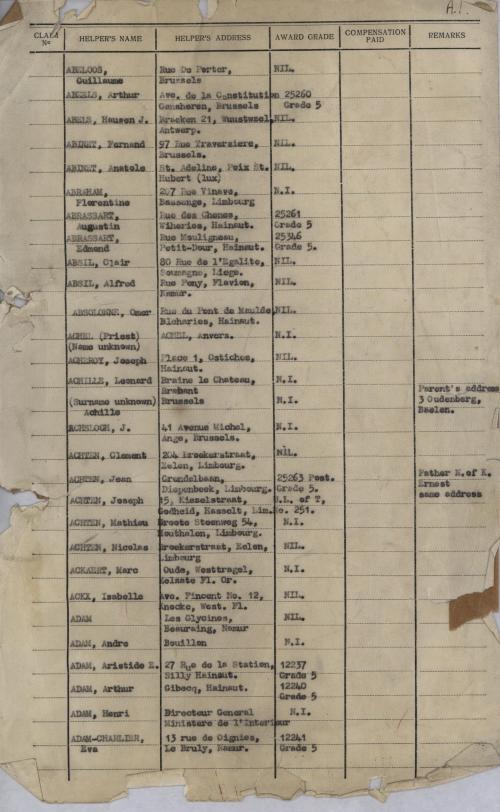 A.1.
CLAIM No HELPER'S NAME HELPER'S ADDRESS AWARD GRADE COMPENSATION PAID REMARKS
ABELOOS, Rue De Perter, NIL.
Guillaume Brussels
ABEELS, Arthur Ave. de la Constitution 25260
Ganshoren, Brussels Grade 5
ABELS, Hausen J. Bracken 21, Wuustwzel, NIL.
Antwerp.
ABINET, Fernand 97 Rue Traverziere, NIL.
Brussels.
ABINET, Anatole St. Adeline, Poix St. NIL.
Hubert (lux)
ABRAHAM, 207 Rue Vinave, N.I.
Florentine Bassenge, Limbourg
ABRASSART, Rue des Chenes, 25261
Augustin Wiheries, Hainaut. Grade 5
ABRASSART, Rue Mouligneau, 25346
Edmond Petit-Dour, Hainaut. Grade 5.
ABSIL, Clair 80 Rue de l'Egalite, NIL.
Soumagne, Liege.
ABSIL, Alfred Rue Pony, Flavion, NIL.
Namur.
ABSOLONNE, Omer Rue du Pont de Maulde, NIL.
Blcharies, Hainaut.
ACHEL (Priest) ACHEL, Anvers. N.I.
(Name unknown)
ACHEROY, Joseph Place 1, Ostiches, NIL.
Hainaut.
ACHILLE, Leonard Braine le Chateau, N.I. Parent's address
Brabant 3 Oudenberg,
(Surname unknown) Brussels N.I. Baelen.
Achille
J. 41 Avenue Michel, N.I.
Ange, Brussels.
ACHTEN, Clement 204 Broekerstraat, NIL.
Eelen, Limbourg.
ACHTEN, Jean Grendelbaan, 25263 Post. Father N.of K.
Diepenbeek, Limbourg. Grade 5. Ernest
ACHTEN, Joseph 15, Kieselstraat, N.L. of T, same address
Godheid, Hasselt, Lim. No. 251.
ACHTEN, Mathieu Groote Steenweg 54, N.I.
Houthalen, Limbourg.
ACHTEN, Nicolas Broekerstraat, Eelen, NIL.
Limbourg
ACKAERT, Marc Oude, Westtragel, N.I.
Melzate Fl. Or.
ACKX, Isabelle Ave. Fincent No. 12, NIL.
West. Fl.
ADAM Les Glycines, NIL.
Beauraing, Namur
ADAM, Andre Bouillon N.I.
ADAM, Aristide E. 27 Rue de la Station, 12237
Silly Hainaut. Grade 5
ADAM, Arthur Gibecq, Hainaut. 12240
Grade 5
ADAM, Henri Directeur General N.I.
Ministere de l'Interieur
ADAM-CHARLIER, 13 rue de Oignies, 12241
Eva Le Bruly, Namur. Grade 5